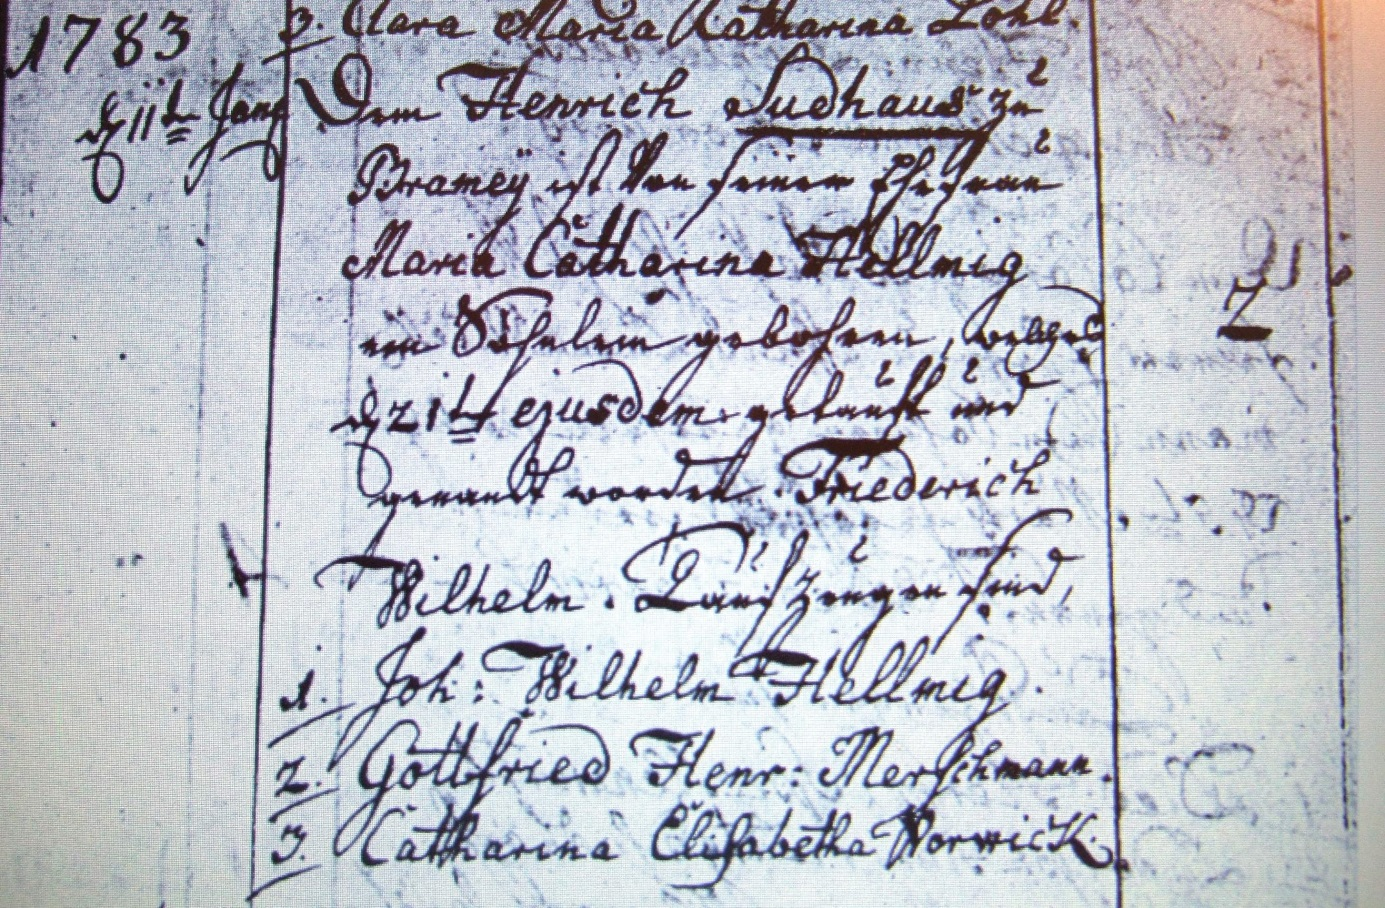 1783 3. Clara Maria Catharina Lohl.
d 11te Jan Dem Henrich Sudhaus zu
Bramey ist von seiner Ehefrau
Maria Catharina Hellmig
ein Söhnlein gebohren, welches
d 21te ejusdem getauft und
genandt worden. Friederich
Wilhelm. Taufzeugen sind,
1. Joh: Wilhelm Hellmig.
2. Gottfried Henr: Merschmann.
3. Catharina Elisabetha Vorwick.
2